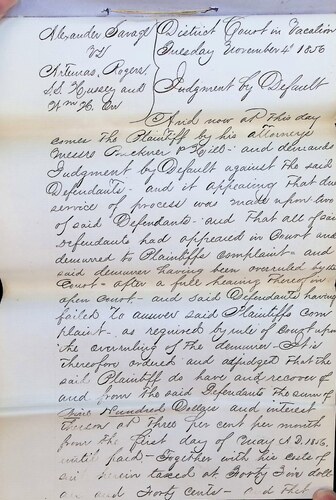 Alexander Savage
District Court in Vacation
vs
Tuesday November 4th 1856
Artemas, Rogers.
S.S. Hussey and
Judgment by Default
Wm H. Orr
And now at this day
comes the Plaintiff by his attorneys
Messrs & Hill - and demands
Judgment by Default against the said
Defendants - and it appearing that due
service of process was made upon two
of said Defendants - and that all of said
Defendants had appeared in Court and
demured to Plaintiffs complaint - and
said demurer having been overruled by the
Court - after a full hearing thereof in
open Court - and said Defendants having
failed to answer said Plaintiffs com
plaint - as required by rule of Court upon
the overruling of the demurer - It is
therefore ordered and adjudged that the
said Plaintiff do have and recover of
and from the said Defendants the sum of
Hundred Dollars and interest
thereon at Three per cent per month
from the first day of May A.D. 1856.
until paid - Together with his costs of
suit herein taxed at Forty dol
and Forty Cents - and that